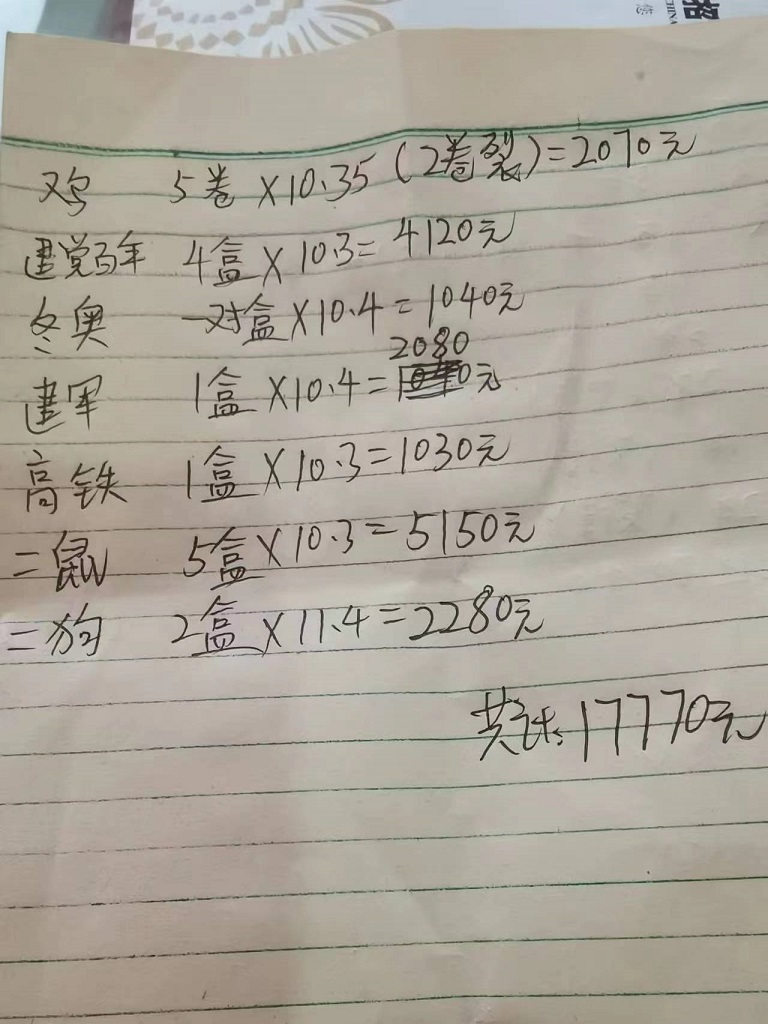 招
CHINA
鸡 5卷 ×10.35 (2卷裂)=2070元
建党百年 4盒×10.3=4120元
冬奥 一对盒×10.4=1040元
2080
建军 1盒×10.4=元
高铁 1盒×10.3=1030元
二鼠 5盒×10.3=5150元
二狗 2盒×11.4=2280元
共计:17770元